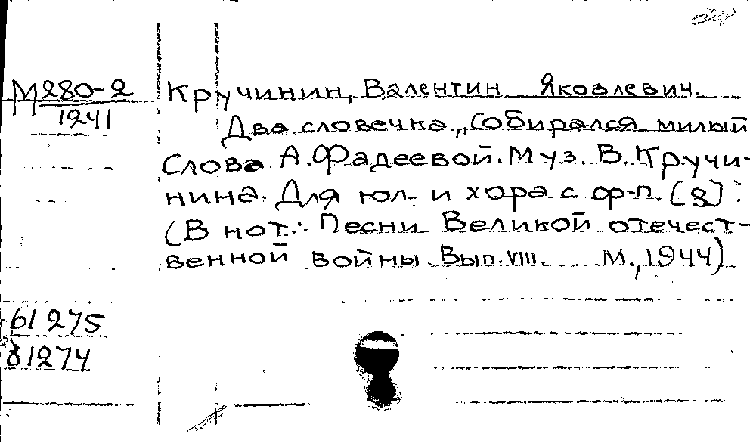 М280-2 Кручинин, Валентин Яковлевич.
1241 Два словечка. „Собирался милый
Слова А. Фадеевой. Муз. В. Кручи-
нина. Для гол. и хора с ф-п. [8]
(В нот.: Песни Великой отечест-
венной войны. Вып. VIII. М., 1944)
61275
61274